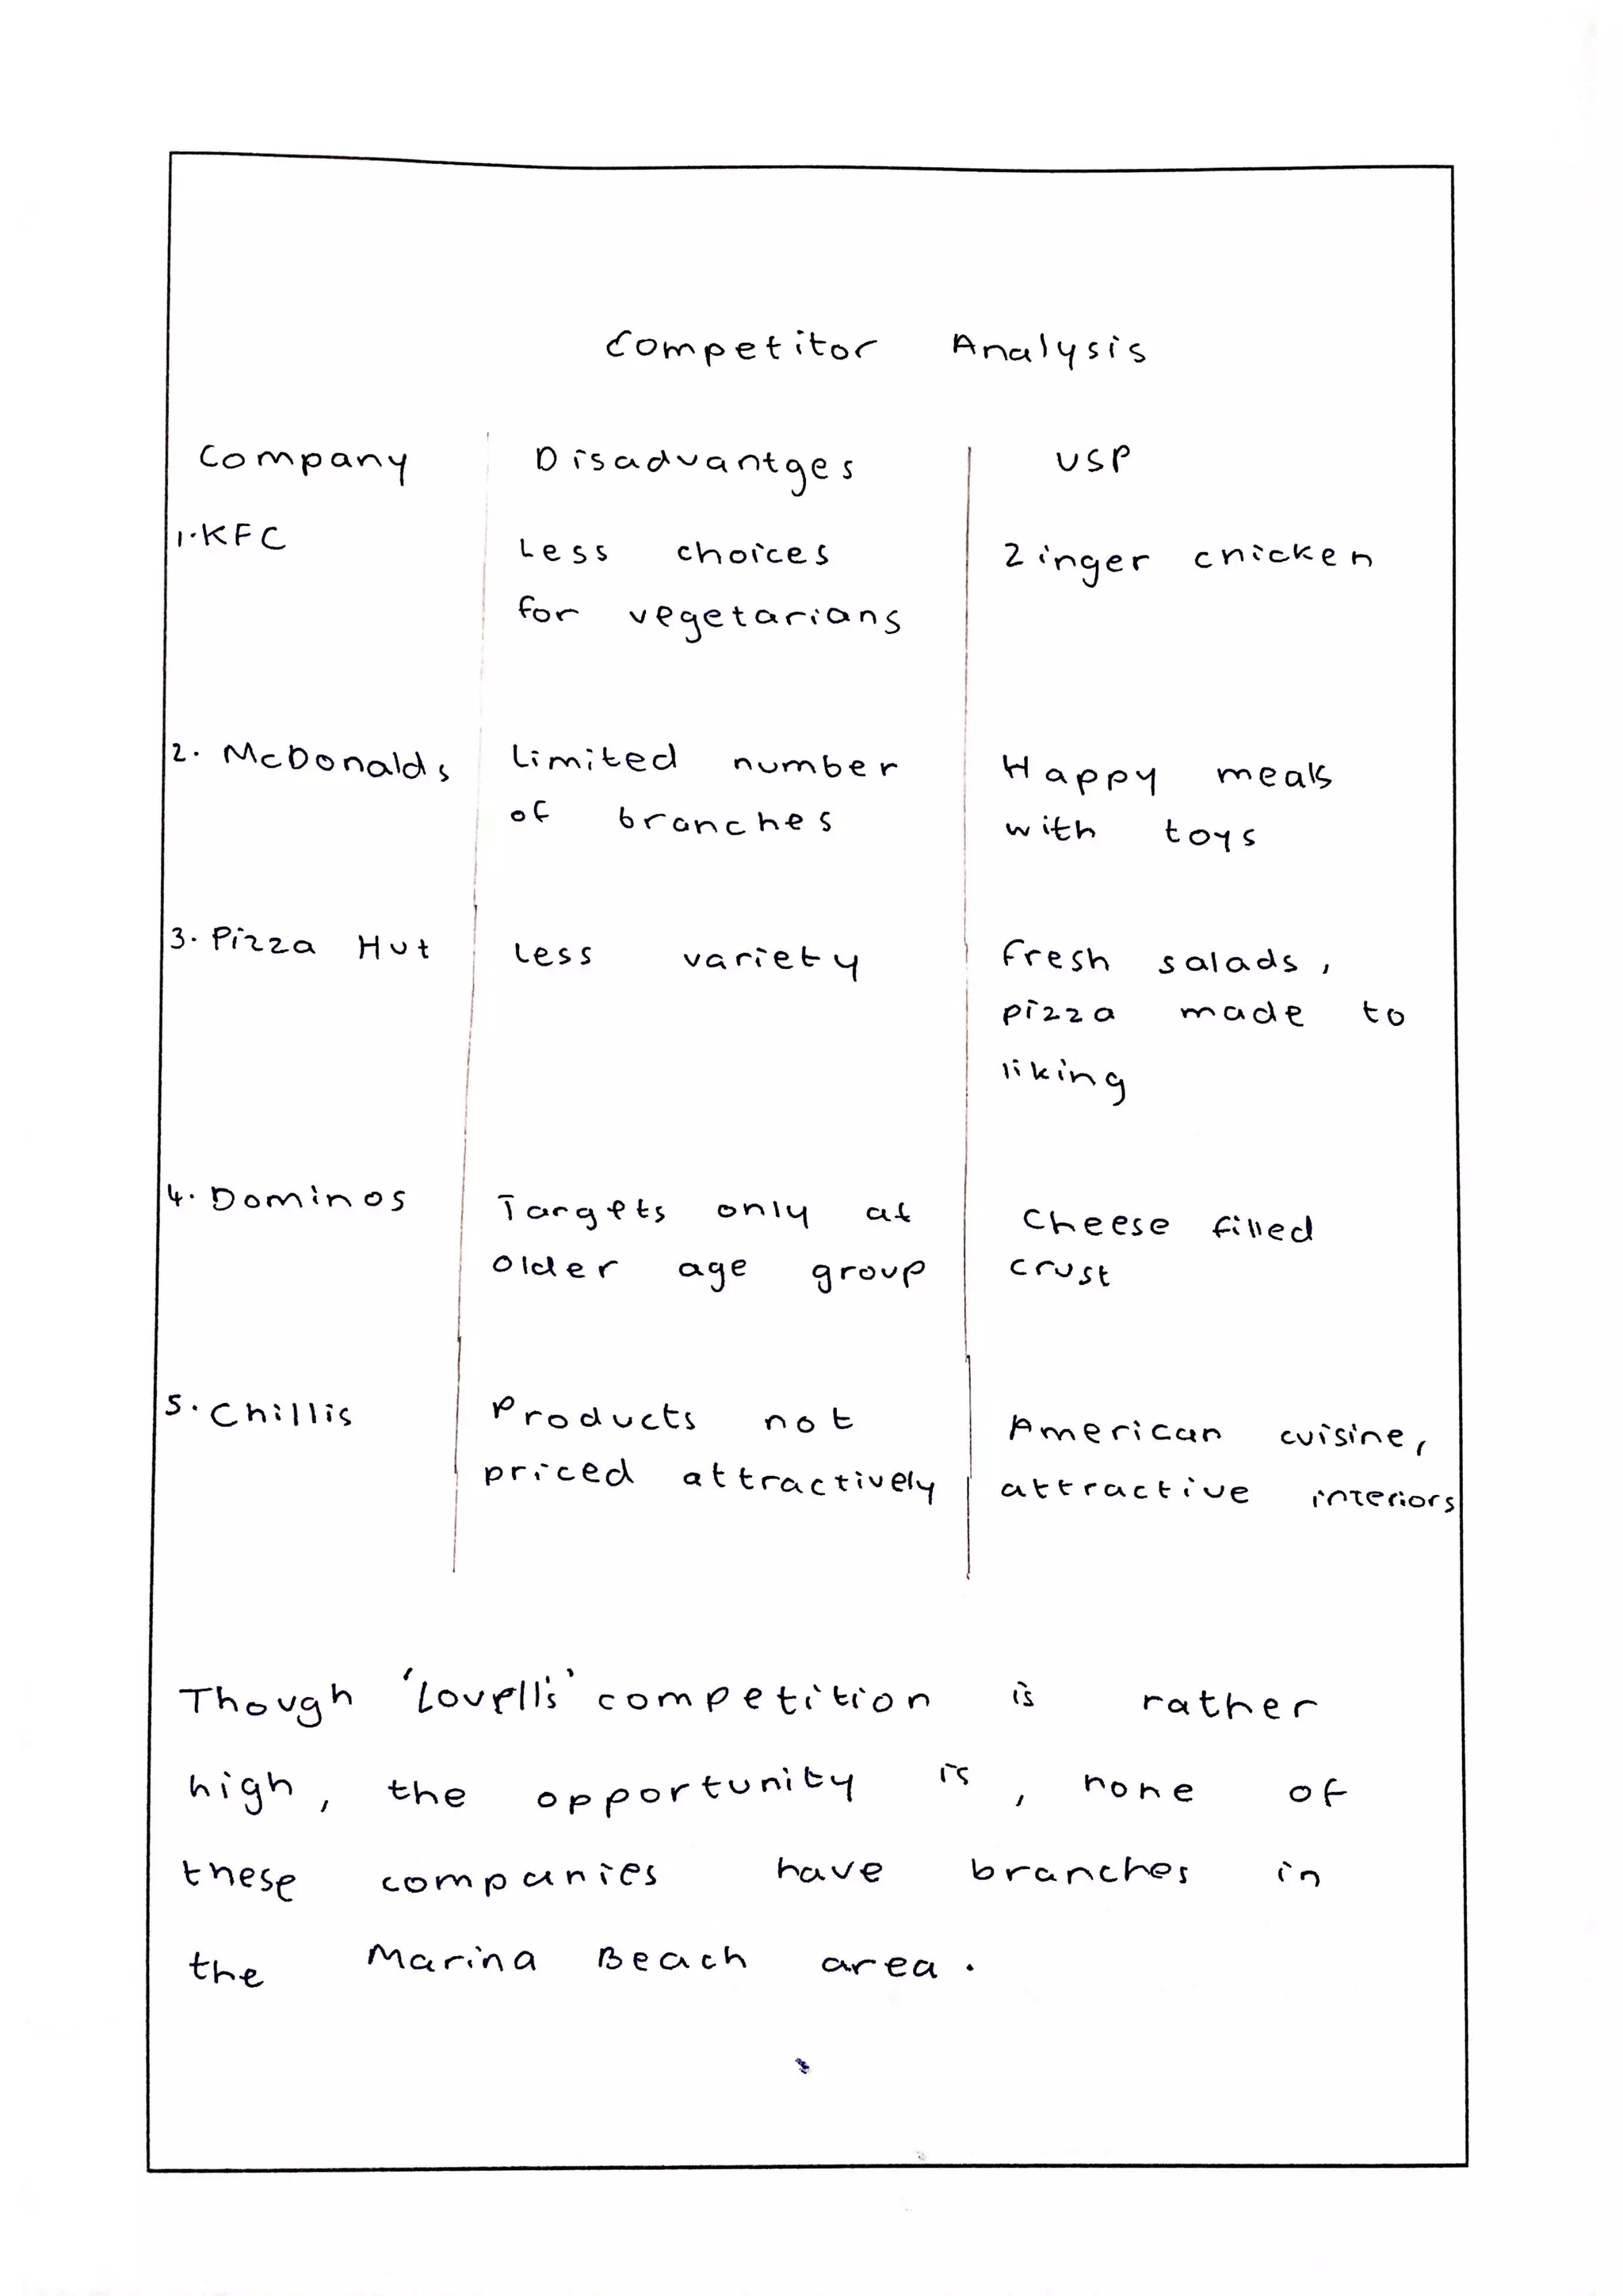 Competitor Analysis
Company Disadvantges USP
1. KFC Less choices Zinger chicken
for vegetarians
2. McDonalds Limited number Happy meals
of branches with toys
3. Pizza Hut Less variety Fresh salads,
pizza made to
liking
4. Dominos Targets only at Cheese filled
older age group crust
5. Chillis Products not American cuisine,
priced attractively attractive interiors
Though 'Lovell's' competition is rather
high, the opportunity is, none of
these companies have branches in
the Marina Beach area.